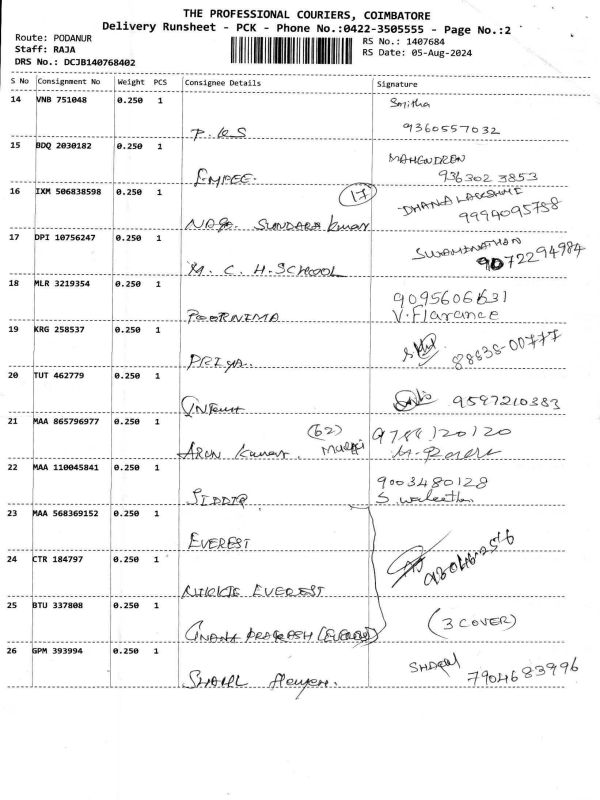 THE PROFESSIONAL COURIERS, COIMBATORE
Delivery Runsheet - PCK - Phone No.:0422-3505555 - Page No.:2
Route: PODANUR
Staff: RAJA
DRS No.: DCJB140768402
RS No.: 1407684
RS Date: 05-Aug-2024
S No Consignment No Weight PCS Consignee Details Signature
14 VNB 751048 0.250 1 Smitha
P. K S 9360557032
15 BDQ 2030182 0.250 1 MAHENDREN
EMPEE. 936302 3853
16 IXM 506838598 0.250 1 (17) DHANA LAKSHMI
NAGA SUNDARA Kumar 9994095758
17 DPI 10756247 0.250 1 SWAMINATHAN
M. C. H. SCHOOL 9072294984
18 MLR 3219354 0.250 1 9095606631
POORNIMA V. Flarance
19 KRG 258537 0.250 1
PRIYA. 88838-00777
20 TUT 462779 0.250 1
9597210383
21 MAA 865796977 0.250 1 (62) 9788120120
ARUN Kumar.
22 MAA 110045841 0.250 1 9003480128
SIDDIR
23 MAA 568369152 0.250 1
EVEREST
24 CTR 184797 0.250 1
EVEREST
25 BTU 337808 0.250 1 (3 COVER)
PRAKASH (EVEREST)
26 GPM 393994 0.250 1
7904683996